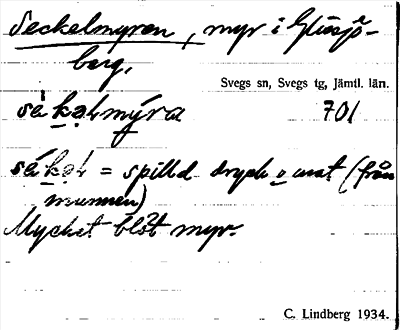 Seckelmyren, myr i Glissjö-
berg.
Svegs sn, Svegs tg, Jämtl. län.
701
= spilld dryck o mat (från
munnen)
Mycket blöt myr.
C. Lindberg 1934.